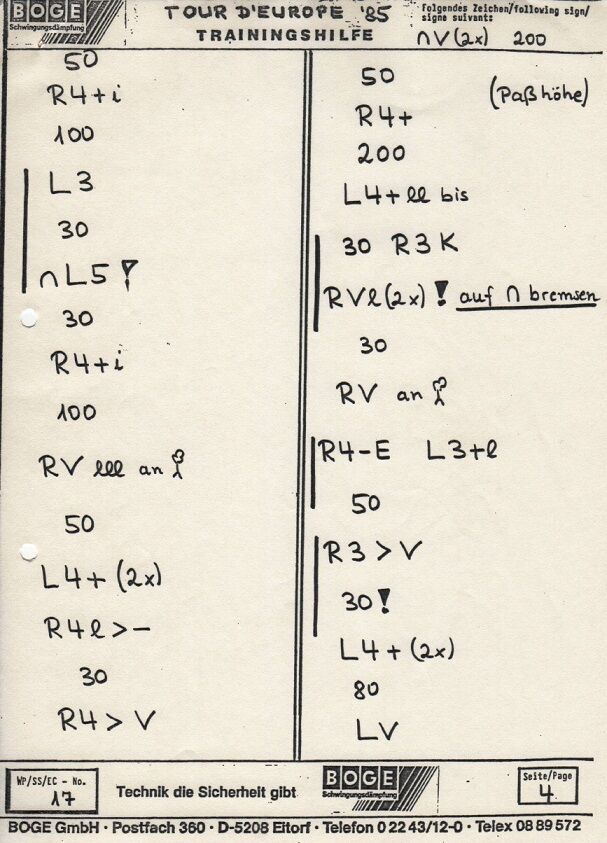 BOGE
Schwingungsdämpfung
TOUR D'EUROPE '85
TRAININGSHILFE
folgendes Zeichen/following sign/
signe suivant:
∩V(2x) 200
50
R4+i
100
L3
30
∩L5 !
30
R4+i
100
RV lll an
50
L4+ (2x)
R4l>-
30
R4>V
50
(Paßhöhe)
R4+
200
L4+ll bis
30 R3K
RVl(2x)! auf ∩ bremsen
30
RV an
R4-E L3+l
50
R3>V
30!
L4+(2x)
80
LV
WP/SS/EC - No.
17
Technik die Sicherheit gibt
BOGE
Schwingungsdämpfung
Seite/Page
4
BOGE GmbH · Postfach 360 · D-5208 Eitorf · Telefon 0 22 43/12-0 · Telex 08 89 572